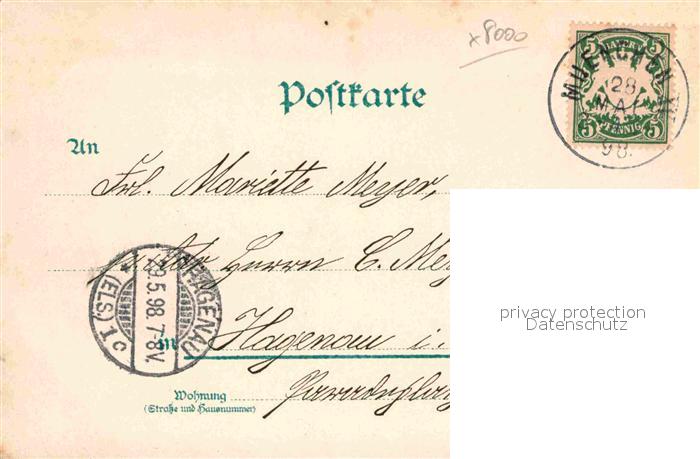 x 8000
BAYERN
5 5
5 PFENNIG 5
MUENCHEN
28
MAI
98.
Postkarte
An
Frl. Mariette Meyer,
Herrn C. Mey
HAGENAU
29.5.98.7-8V.
* (ELS.) 1 C
in Hagenau i.
Wohnung Paradeplatz
(Straße und Hausnummer)
privacy protection
Datenschutz